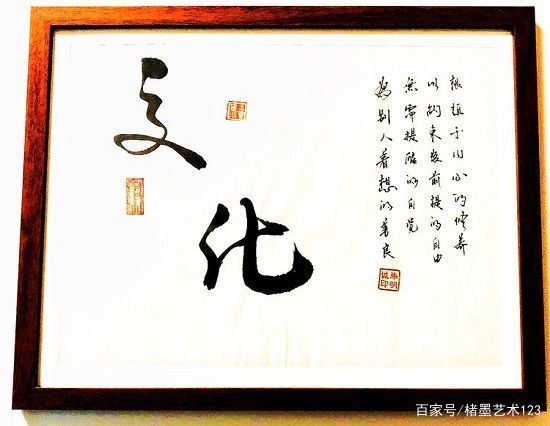 文化
根植于内心的修養
以約束為前提的自由
無需提醒的自觉
為别人着想的善良
百家号/楮墨艺术123